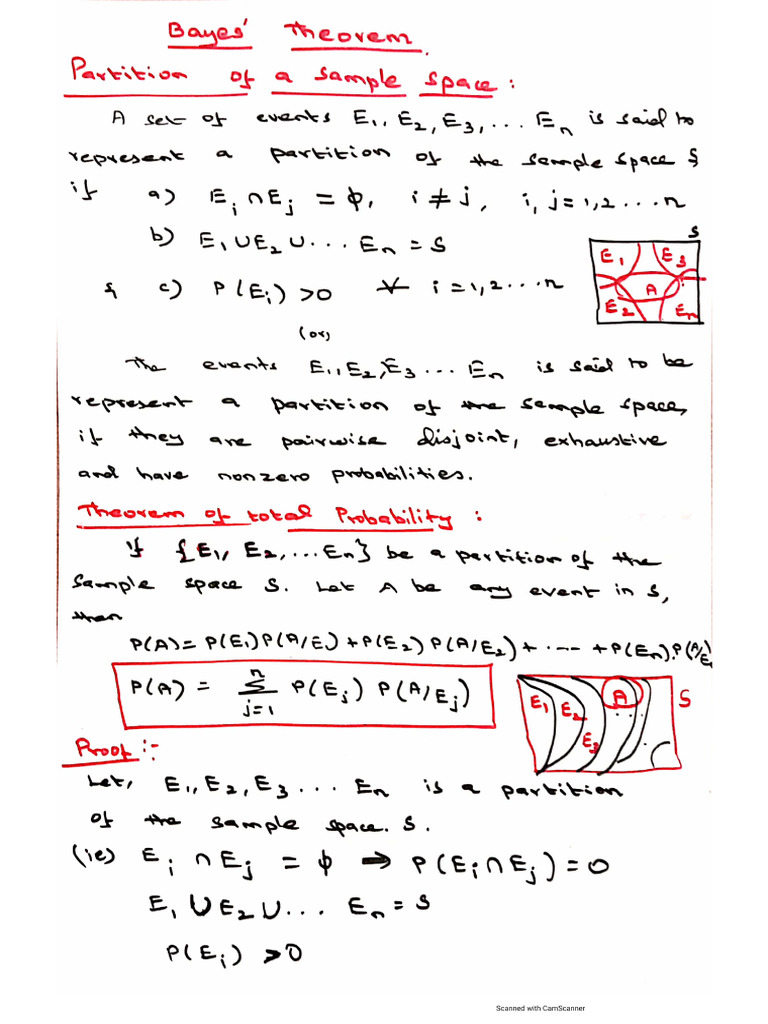 Bayes' Theorem.
Partition of a sample space :
A set of events E₁, E₂, E₃, ... Eₙ is said to
represent a partition of the sample space S
if a) Eᵢ ∩ Eⱼ = ϕ, i ≠ j, i, j = 1, 2 ... n
b) E₁ ∪ E₂ ∪ ... Eₙ = S
& c) P(Eᵢ) > 0 ∀ i = 1, 2 ... n
S
E₁ E₃
A
E₂ Eₙ
(or)
The events E₁, E₂, E₃ ... Eₙ is said to be
represent a partition of the sample space,
if they are pairwise disjoint, exhaustive
and have nonzero probabilities.
Theorem of total Probability :
If {E₁, E₂, ... Eₙ} be a partition of the
sample space S. Let A be any event in S,
then
P(A) = P(E₁) P(A/E₁) + P(E₂) P(A/E₂) + ... + P(Eₙ). P(A/E
P(A) = n Σ j=1 P(Eⱼ) P(A/Eⱼ)
E₁ E₂ E₃ A ... S
Proof :-
Let, E₁, E₂, E₃ ... Eₙ is a partition
of the sample space. S.
(ie) Eᵢ ∩ Eⱼ = ϕ ⇒ P(Eᵢ ∩ Eⱼ) = 0
E₁ ∪ E₂ ∪ ... Eₙ = S
P(Eᵢ) > 0
Scanned with CamScanner